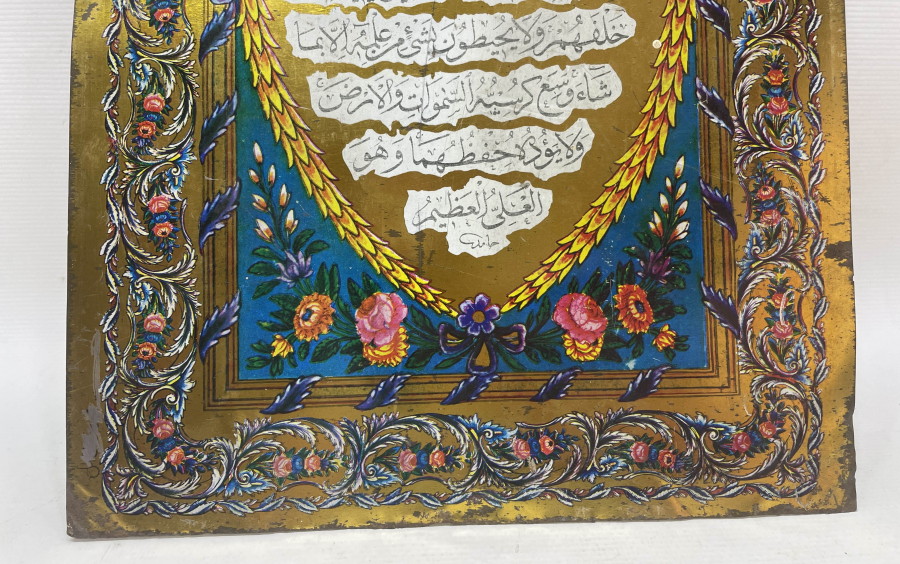 خَلْفَهُمْ وَلَا يُحِيطُونَ بِشَيْءٍ مِنْ عِلْمِهِ إِلَّا بِمَا
شَاءَ وَسِعَ كُرْسِيُّهُ السَّمٰوَاتِ وَالْاَرْضَ
وَلَا يَؤُدُهُ حِفْظُهُمَا وَهُوَ
الْعَلِيُّ الْعَظِيمُ
حامد